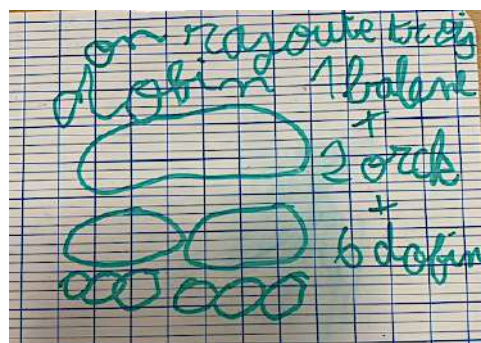 on rajoute trois
dofin 1 balene
+
2 orck
+
6 dofin